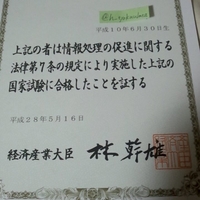 平成10年6月30日生
上記の者は情報処理の促進に関する
法律第7条の規定により実施した上記の
国家試験に合格したことを証する
平成28年5月16日
経済産業大臣 林幹雄